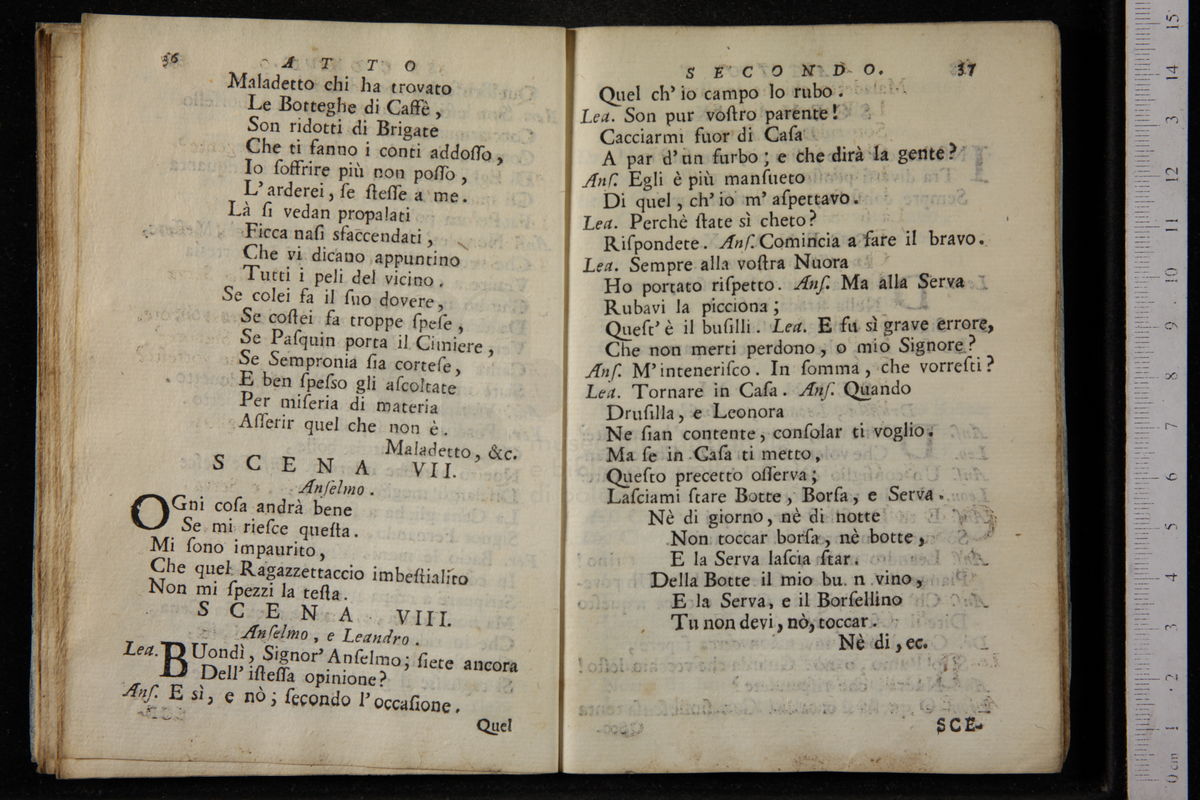 36
A T T O
Maladetto chi ha trovato
Le Botteghe di Caffè,
Son ridotti di Brigate
Che ti fanno i conti addoſſo,
Io ſoffrire più non poſſo,
L'arderei, ſe ſteſſe a me.
Là ſi vedan propalati
Ficca naſi sfaccendati,
Che vi dicano appuntino
Tutti i peli del vicino.
Se colei fa il ſuo dovere,
Se coſtei fa troppe ſpeſe,
Se Paſquin porta il Cimiere,
Se Sempronia ſia corteſe,
E ben ſpeſso gli aſcoltate
Per miſeria di materia
Aſſerir quel che non è.
Maladetto, &c.
S C E N A VII.
Anſelmo.
OGni coſa andrà bene
Se mi rieſce queſta.
Mi ſono impaurito,
Che quel Ragazzettaccio imbeſtialito
Non mi ſpezzi la teſta.
S C E N A VIII.
Anſelmo, e Leandro.
Lea. BUondì, Signor' Anſelmo; ſiete ancora
Dell' iſteſſa opinione?
Anſ. E sì, e nò; ſecondo l'occaſione.
Quel
S E C O N D O. 37
Quel ch' io campo lo rubo.
Lea. Son pur voſtro parente!
Cacciarmi fuor di Caſa
A par d'un furbo; e che dirà la gente?
Anſ. Egli è più manſueto
Di quel, ch' io m' aſpettavo.
Lea. Perchè ſtate sì cheto?
Riſpondete. Anſ. Comincia a fare il bravo.
Lea. Sempre alla voſtra Nuora
Ho portato riſpetto. Anſ. Ma alla Serva
Rubavi la picciona;
Queſt' è il buſilli. Lea. E fu sì grave errore,
Che non merti perdono, o mio Signore?
Anſ. M'inteneriſco. In ſomma, che vorreſti?
Lea. Tornare in Caſa. Anſ. Quando
Druſilla, e Leonora
Ne ſian contente, conſolar ti voglio.
Ma ſe in Caſa ti metto,
Queſto precetto oſſerva;
Laſciami ſtare Botte, Borſa, e Serva.
Nè di giorno, nè di notte
Non toccar borſa, nè botte,
E la Serva laſcia ſtar.
Della Botte il mio bu. n vino,
E la Serva, e il Borſellino
Tu non devi, nò, toccar.
Nè di, ec.
SCE-